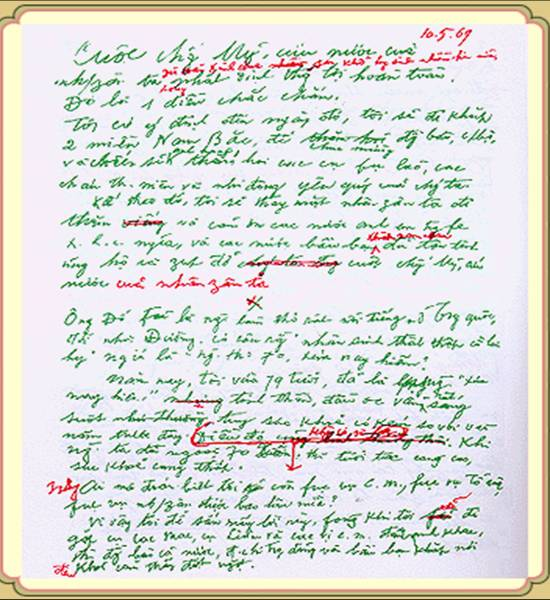 10.5.69
Cuộc chống Mỹ, cứu nước của
dù phải kinh qua nhiều khó khăn hy sinh nhiều hơn nữa, song
nhân zân ta nhất định thắng lợi hoàn toàn.
Đó là 1 điều chắc chắn.
Tôi có ý định đến ngày đó, tôi sẽ đi khắp
2 miền Nam Bắc, để chúc mừng đồng bào, c. bộ,
và chiến sĩ anh hùng, thăm hỏi các cụ fụ lão, các
cháu th. niên và nhi đồng yêu quý của chúng ta.
Kế theo đó, tôi sẽ thay mặt nhân zân ta đi
thăm và cảm ơn các nước anh em trong fe
x. h. c. nghĩa, và các nước bầu bạn đã tận tình
ủng hộ và zúp đỡ cuộc chống Mỹ, cứu
nước của nhân zân ta
x
Ông Đỗ Fủ là người làm thơ rất nổi tiếng ở Trung quốc,
đời nhà Đường. có câu rằng "nhân sinh thất thập cổ lai
hy" nghĩa là "người thọ 70, xưa nay hiếm".
Năm nay, tôi vừa 79 tuổi, đã là lớp người "xưa
nay hiếm" tinh thần, đầu óc vẫn rất sáng
suốt tuy sức khoẻ có kém so với vài
năm trước đây. Khi
người ta đã ngoài 70 xuân, thì tuổi tác càng cao,
sức khoẻ càng thấp.
Nhưng Ai mà đoán biết tôi còn fục vụ C. M., fục vụ Tổ quốc,
fục vụ nh/zân được bao lâu nữa?
Vì vậy tôi để sẵn mấy lời này, fòng khi tôi sẽ đi
gặp cụ Các Mác, cụ Lênin và các vị c. m. đàn anh khác,
thì đồng bào cả nước, đ. chí trong đảng và bầu bạn khắp nơi
đều khỏi cảm thấy đột ngột.